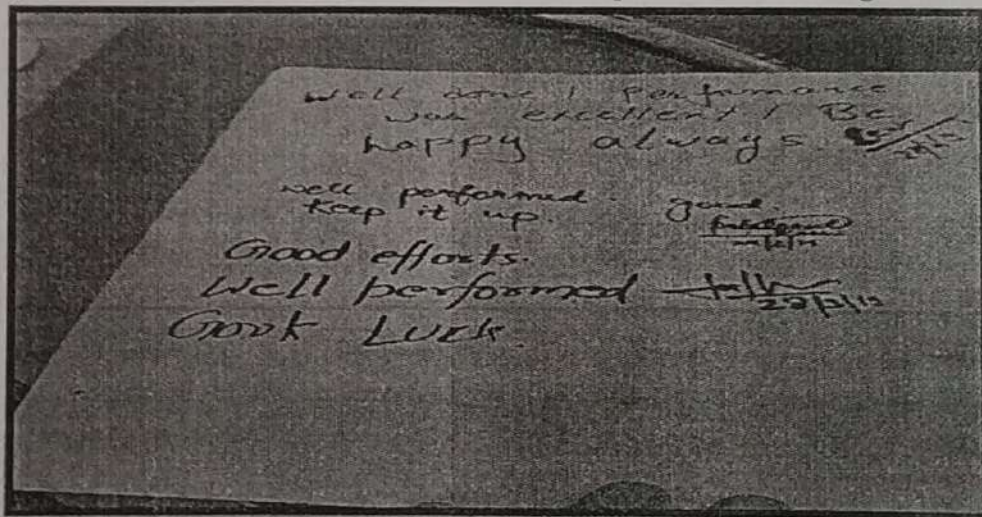 Well done! Performance
was excellent! Be
happy always.
Well performed. good.
Keep it up.
Good efforts.
Well performed
Gook Luck.